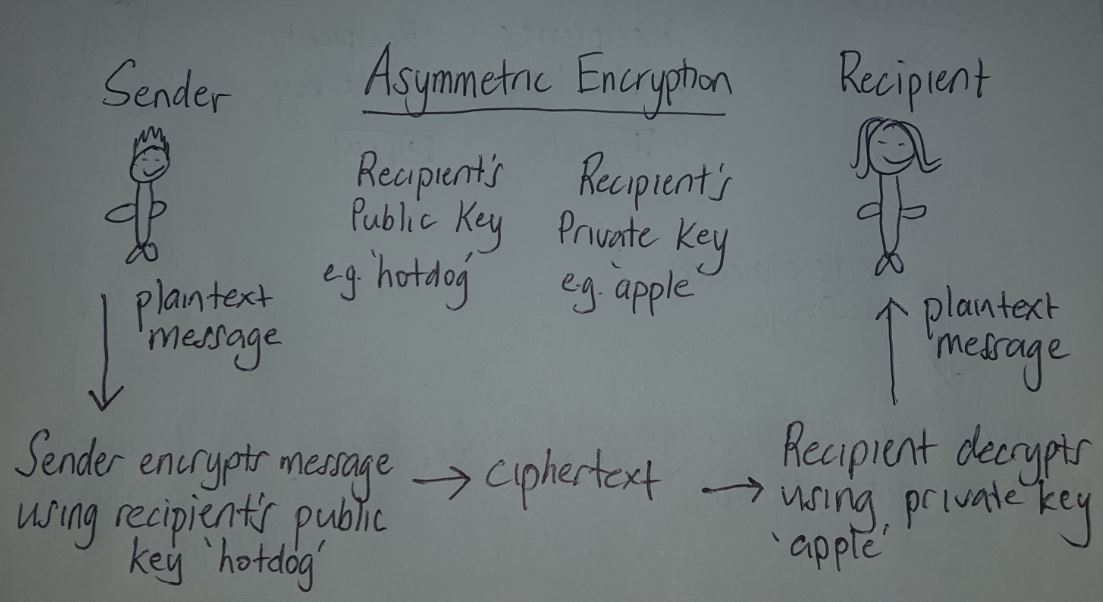 Sender
Asymmetric Encryption
Recipient
Recipient's
Public Key
e.g. 'hotdog'
Recipient's
Private Key
e.g. 'apple'
plaintext
message
plaintext
message
Sender encrypts message
using recipient's public
key 'hotdog'
→ ciphertext →
Recipient decrypts
using private key
'apple'